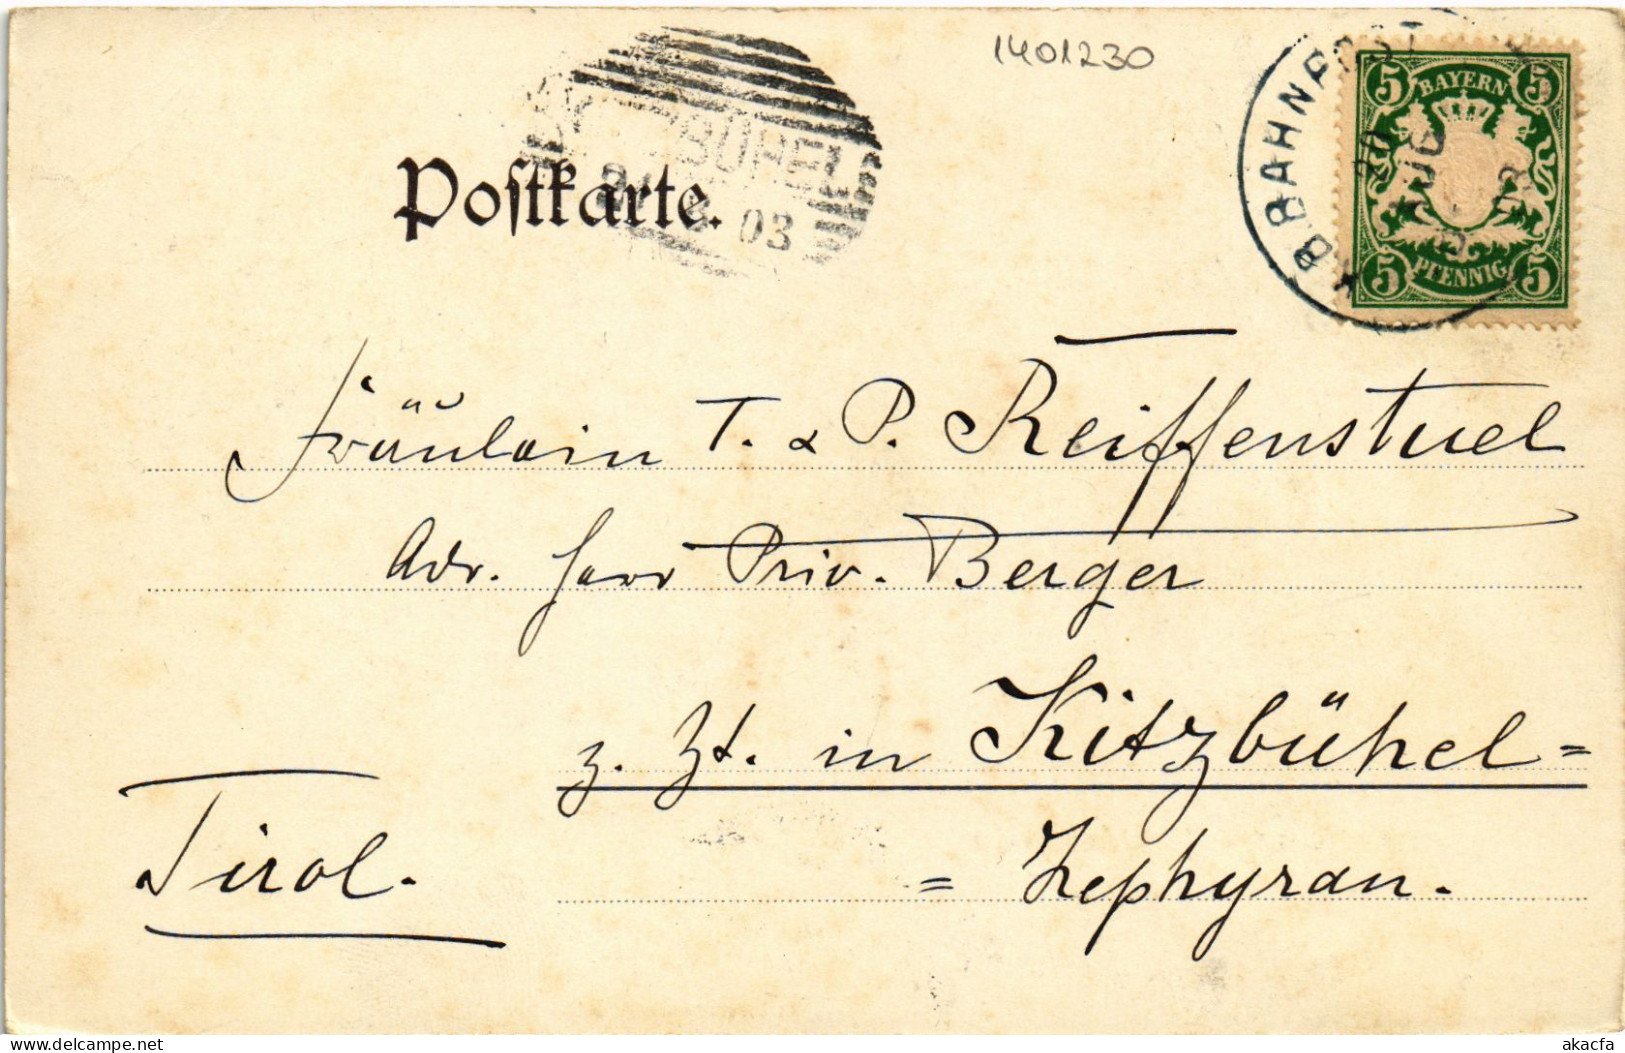 1401230
BÜHEL
03
Postkarte.
K.B.BAHNPOST
20
AUG
03
5 BAYERN 5
5 PFENNIG 5
Fräulein T. & P. Reiffenstuel
Adr. Herr Priv. Berger
z. Zt. in Kitzbühel =
Tirol.
= Zephyrau.
www.delcampe.net
akacfa